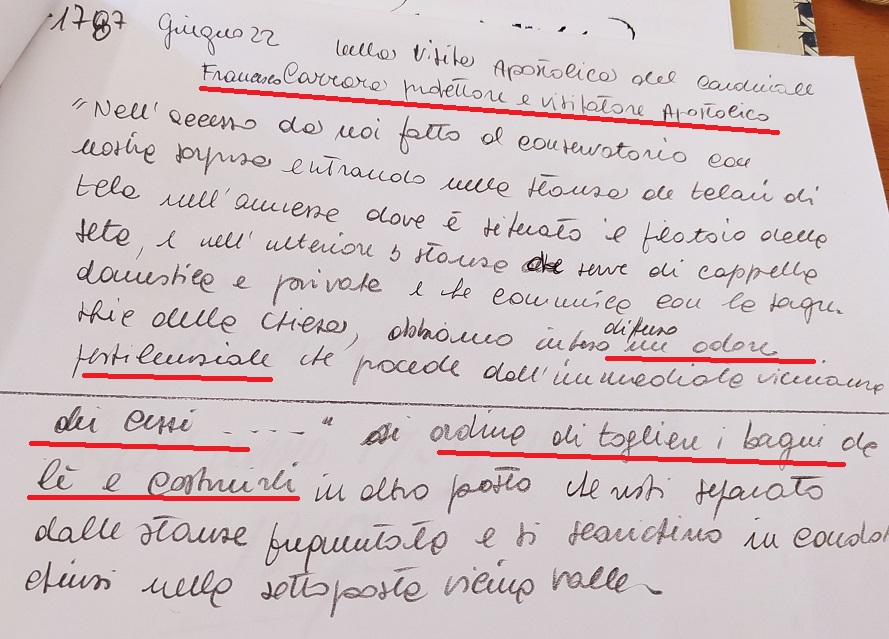 1787 Giugno 22 dalla Visita Apostolica del Cardinale
Francesco Carrara protettore e visitatore Apostolico
"Nell'accesso da noi fatto al conservatorio con
nostra sorpresa entrando nelle stanze de telari di
tela nell'annesse dove è situato il filatoio della
seta, e nell'ulteriore stanza che serve di cappella
domestica e privata e che comunica con la sagre-
stia della Chiesa, abbiamo inteso diffuso un odore
pestilenziale che procede dall'immediata vicinanza
dei cessi ....." si ordina di togliere i bagni da
lì e costruirli in altro posto che resti separato
dalle stanze frequentate e si scarichino in condot
chiusi nella sottoposta vicina valle